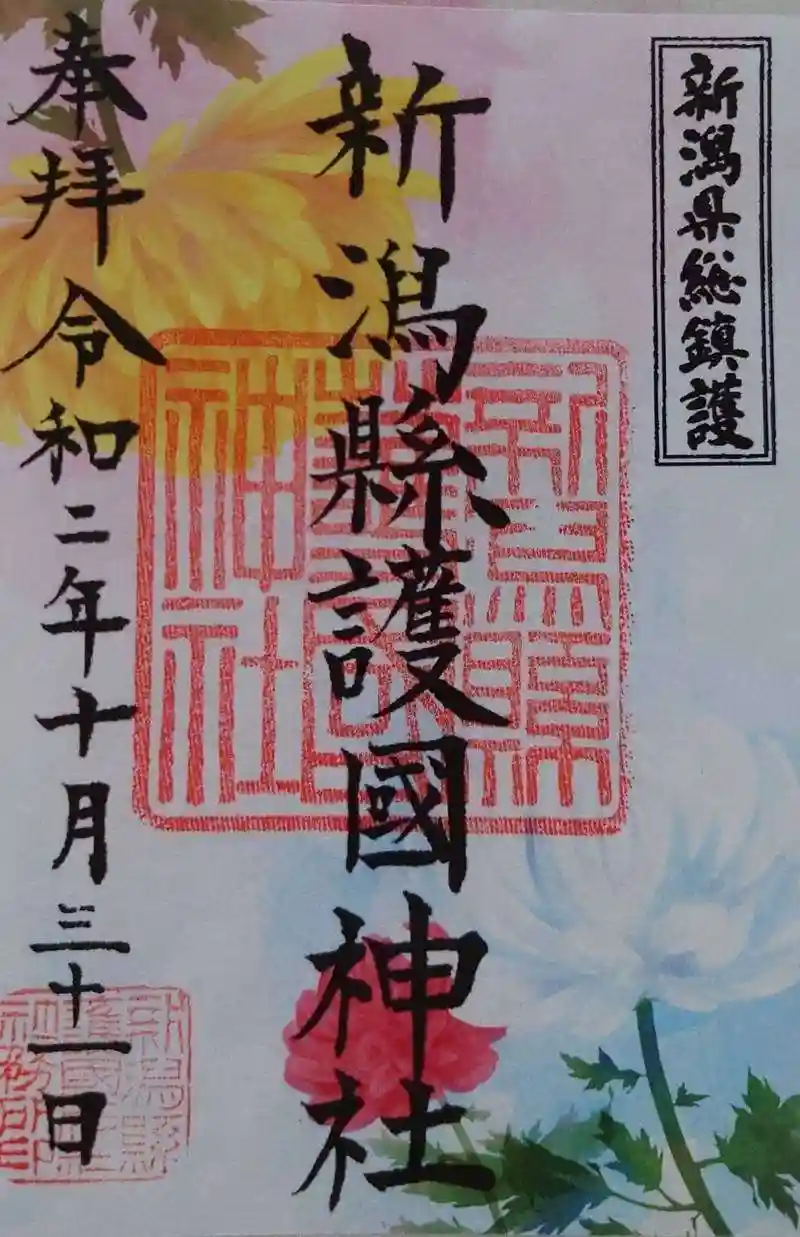 新潟県総鎮護
新潟縣護國神社
奉拝令和二年十月三十一日
新潟縣
護國神社
新潟縣
護國神社